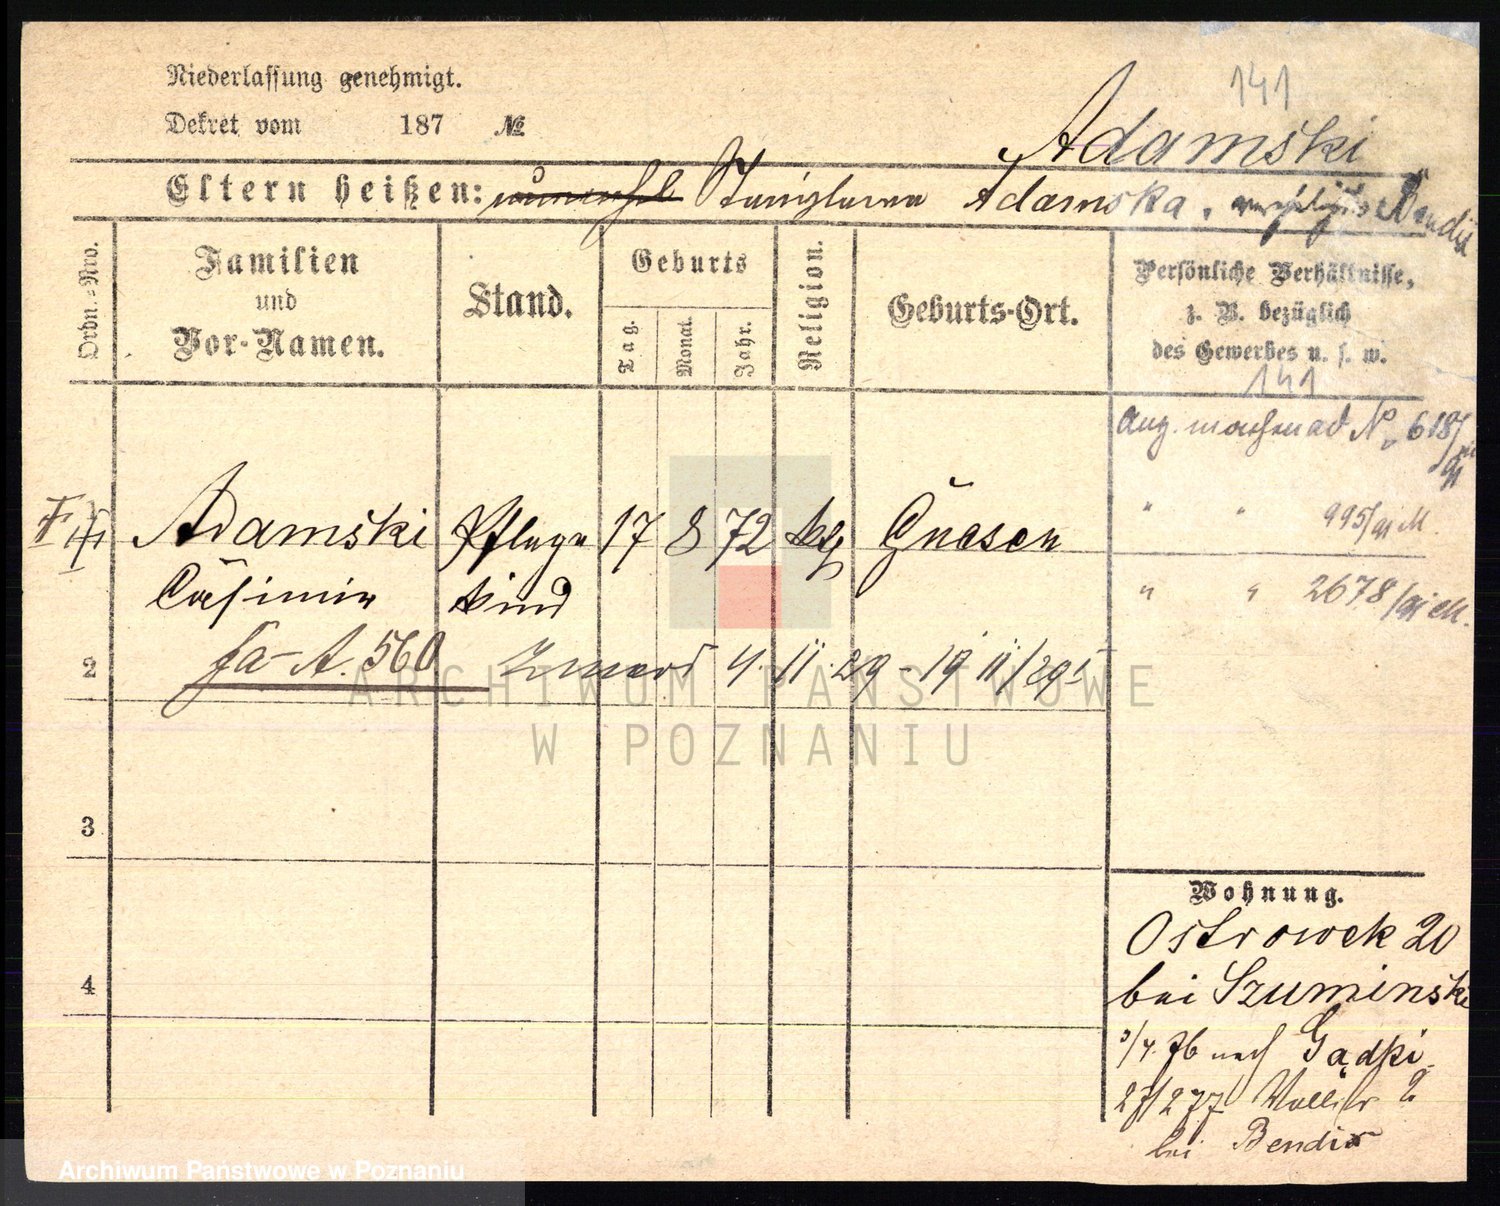 141
Niederlassung genehmigt.
Dekret vom 187 №
Adamski
Eltern heißen: Stanislawa Adamska, Bendix
Ordn.-Nro.
Familien
und
Vor-Namen.
Stand.
Geburts
Tag.
Monat.
Jahr.
Religion.
Geburts-Ort.
Persönliche Verhältnisse,
z. B. bezüglich
des Gewerbes u. s. w.
141
№ 618/91
" " 995/91 M.
Adamski Pflege 17 8 72 ktl Gnesen
Casimir kind
" " 2678/91 M.
2 fa-A. 560 4. 11. 29 - 19 11/29
ARCHIWUM PAŃSTWOWE
W POZNANIU
3
Wohnung.
Ostrowek 20
4
bei Szuminski
3/4. 76 nach Gądki
27/2 77 2
bei Bendix
Archiwum Panstwowe w Poznaniu